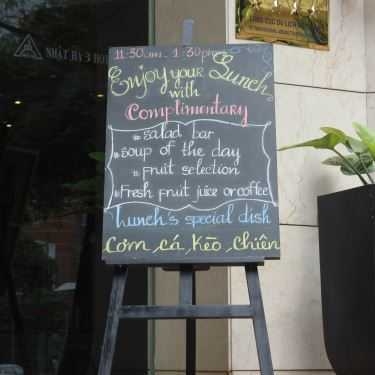 NHẬT HẠ 3 HO
TỔNG CỤC DU LỊCH
11:30am - 1:30pm
Enjoy your Lunch
with
Complimentary
*salad bar
*soup of the day
*fruit selection
*Fresh fruit juice or coffee
Lunch's special dish
Cơm cá kèo chiên